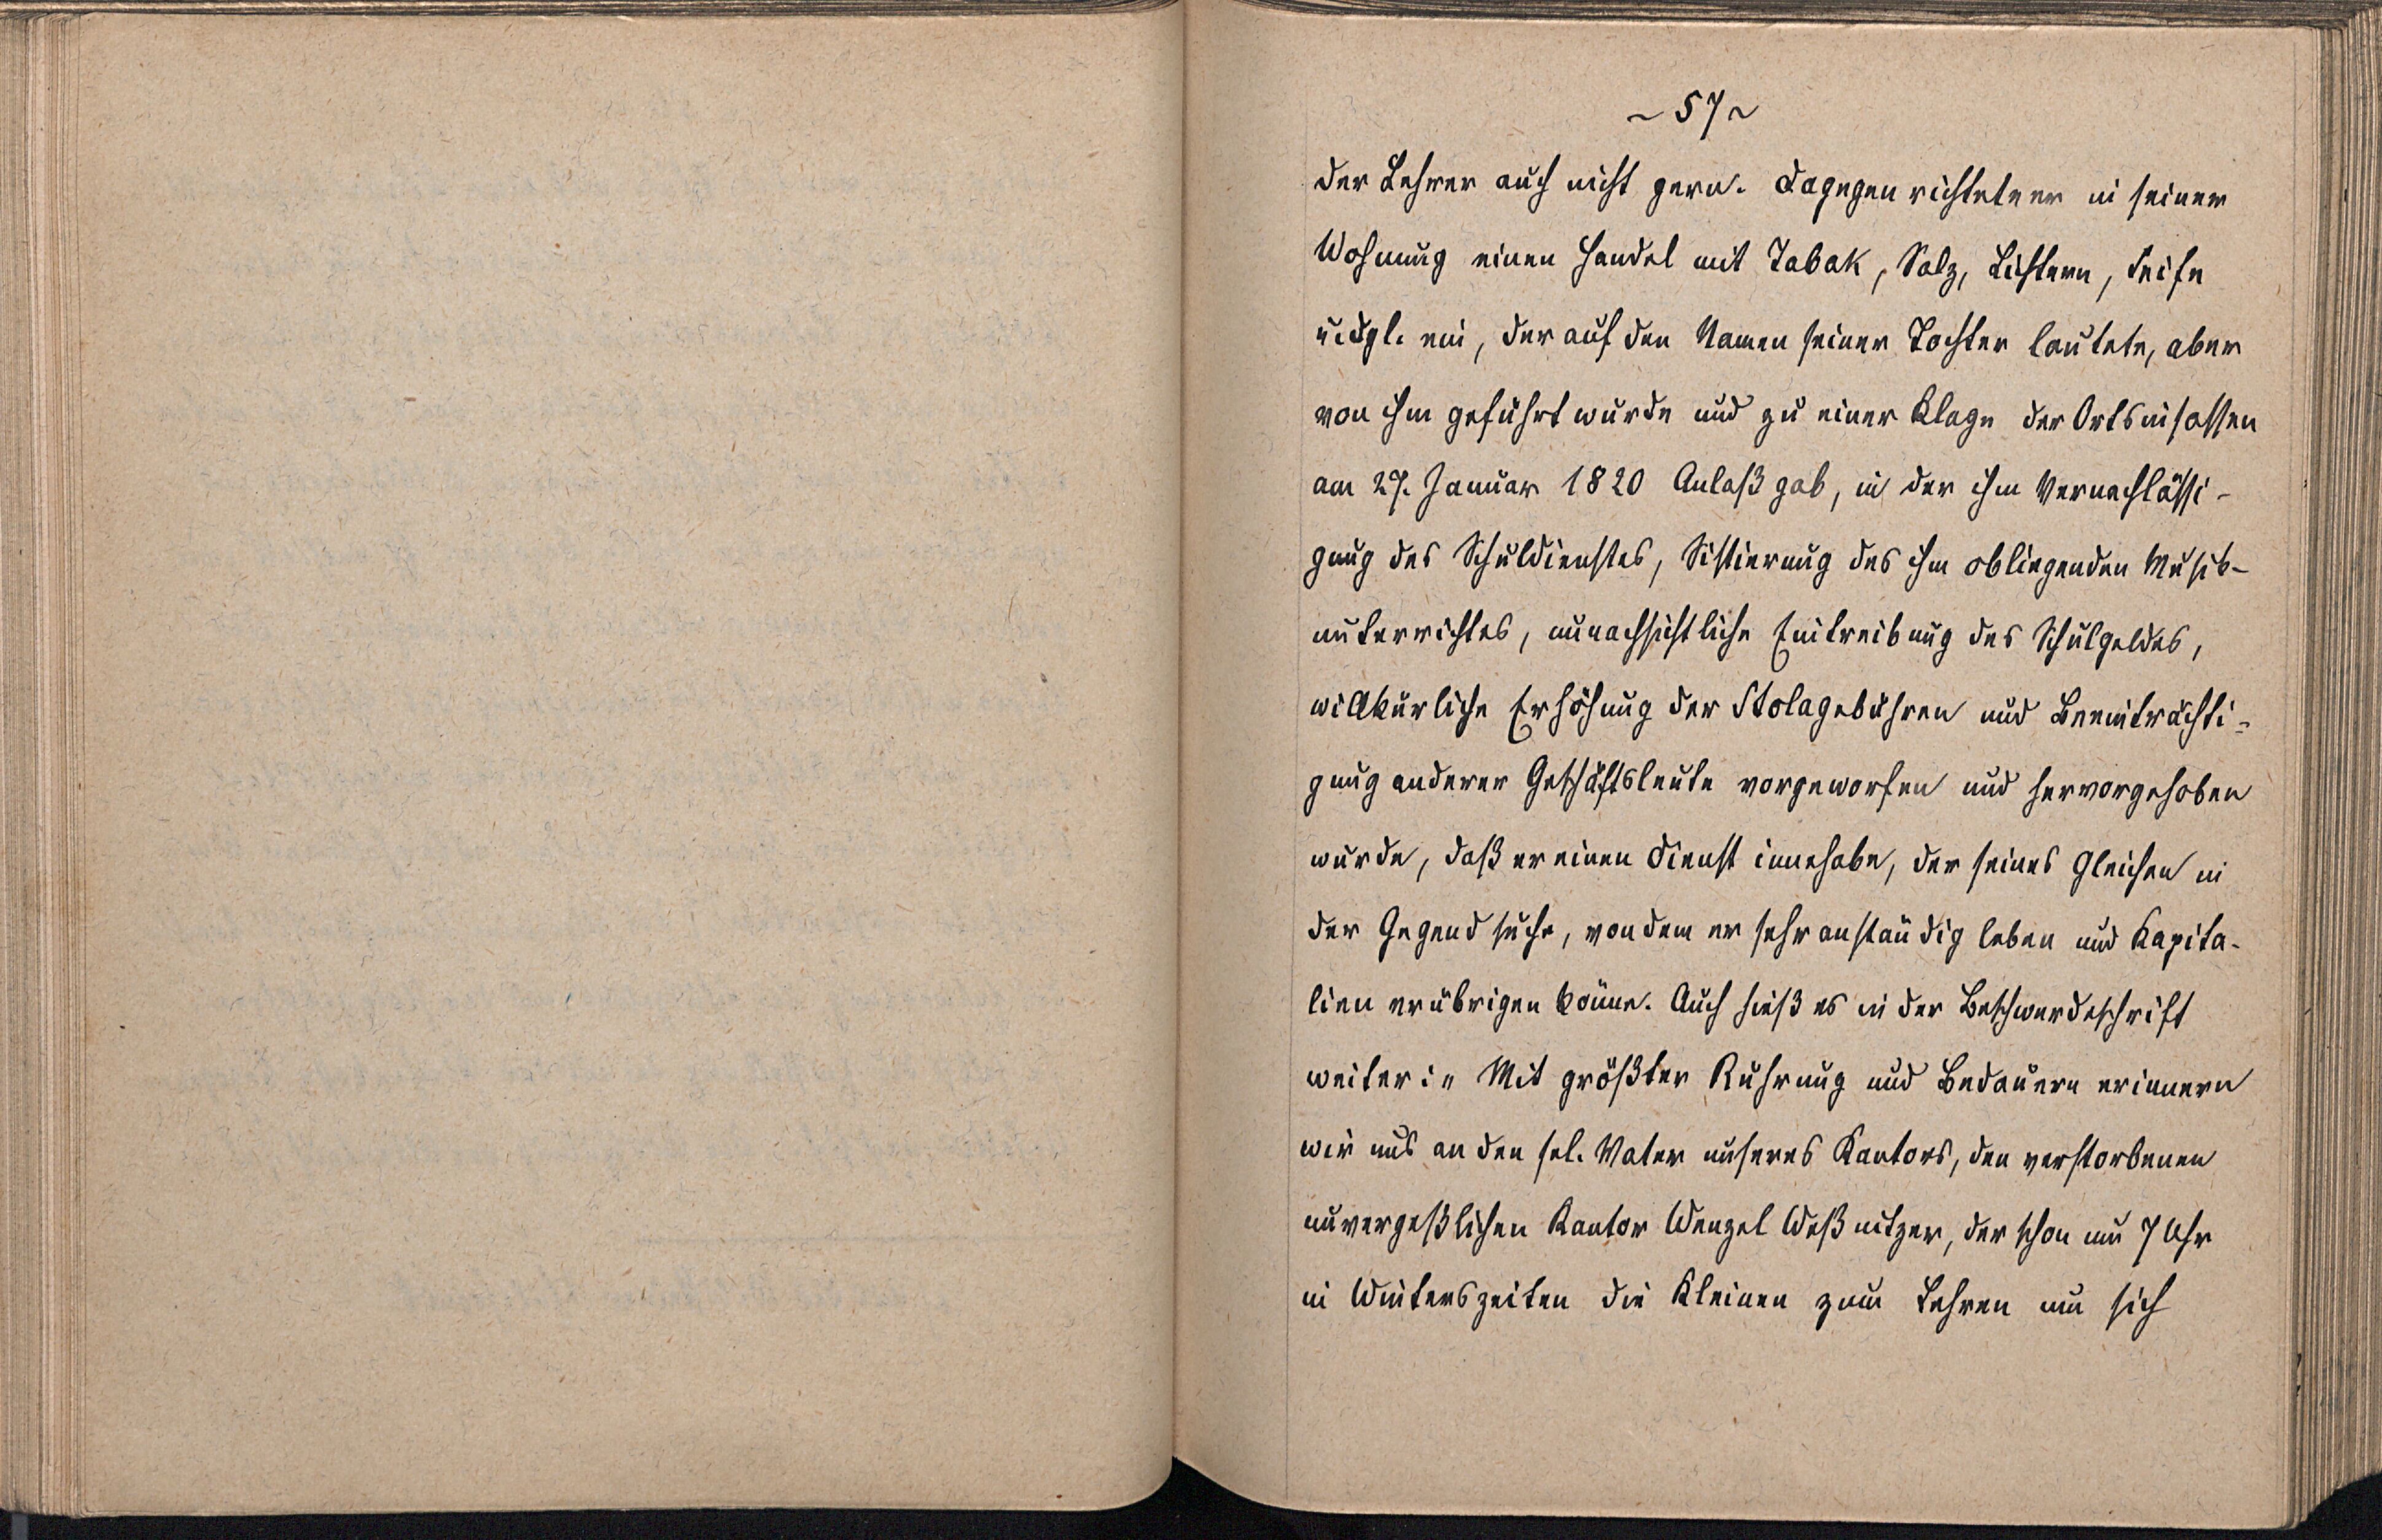 ~ 57 ~
der Lehrer auch nicht gern. Dagegen richtete er in seiner
Wohnung einen Handel mit Tabak, Salz, Lichtern, Seife
u. dgl. ein, der auf den Namen seiner Tochter lautete, aber
von ihm geführt wurde und zu einer Klage der Ortsinsassen
am 27. Januar 1820 Anlaß gab, in der ihm Vernachlässi-
gung des Schuldienstes, Sistierung des ihm obliegenden Musik-
unterrichtes, unnachsichtliche Eintreibung des Schulgeldes,
willkürliche Erhöhung der Stolagebühren und Beeinträchti-
gung anderer Geschäftsleute vorgeworfen und hervorgehoben
wurde, daß er einen Dienst innehabe, der seines Gleichen in
der Gegend suche, von dem er sehr anständig leben und Kapita-
lien erübrigen könne. Auch hieß es in der Beschwerdeschrift
weiter: „Mit größter Rührung und Bedauern erinnern
wir uns an den sel. Vater unseres Kantors, den verstorbenen
unvergeßlichen Kantor Wenzel Weßnitzer, der schon um 7 Uhr
in Winterszeiten die Kleinen zum Lehren um sich